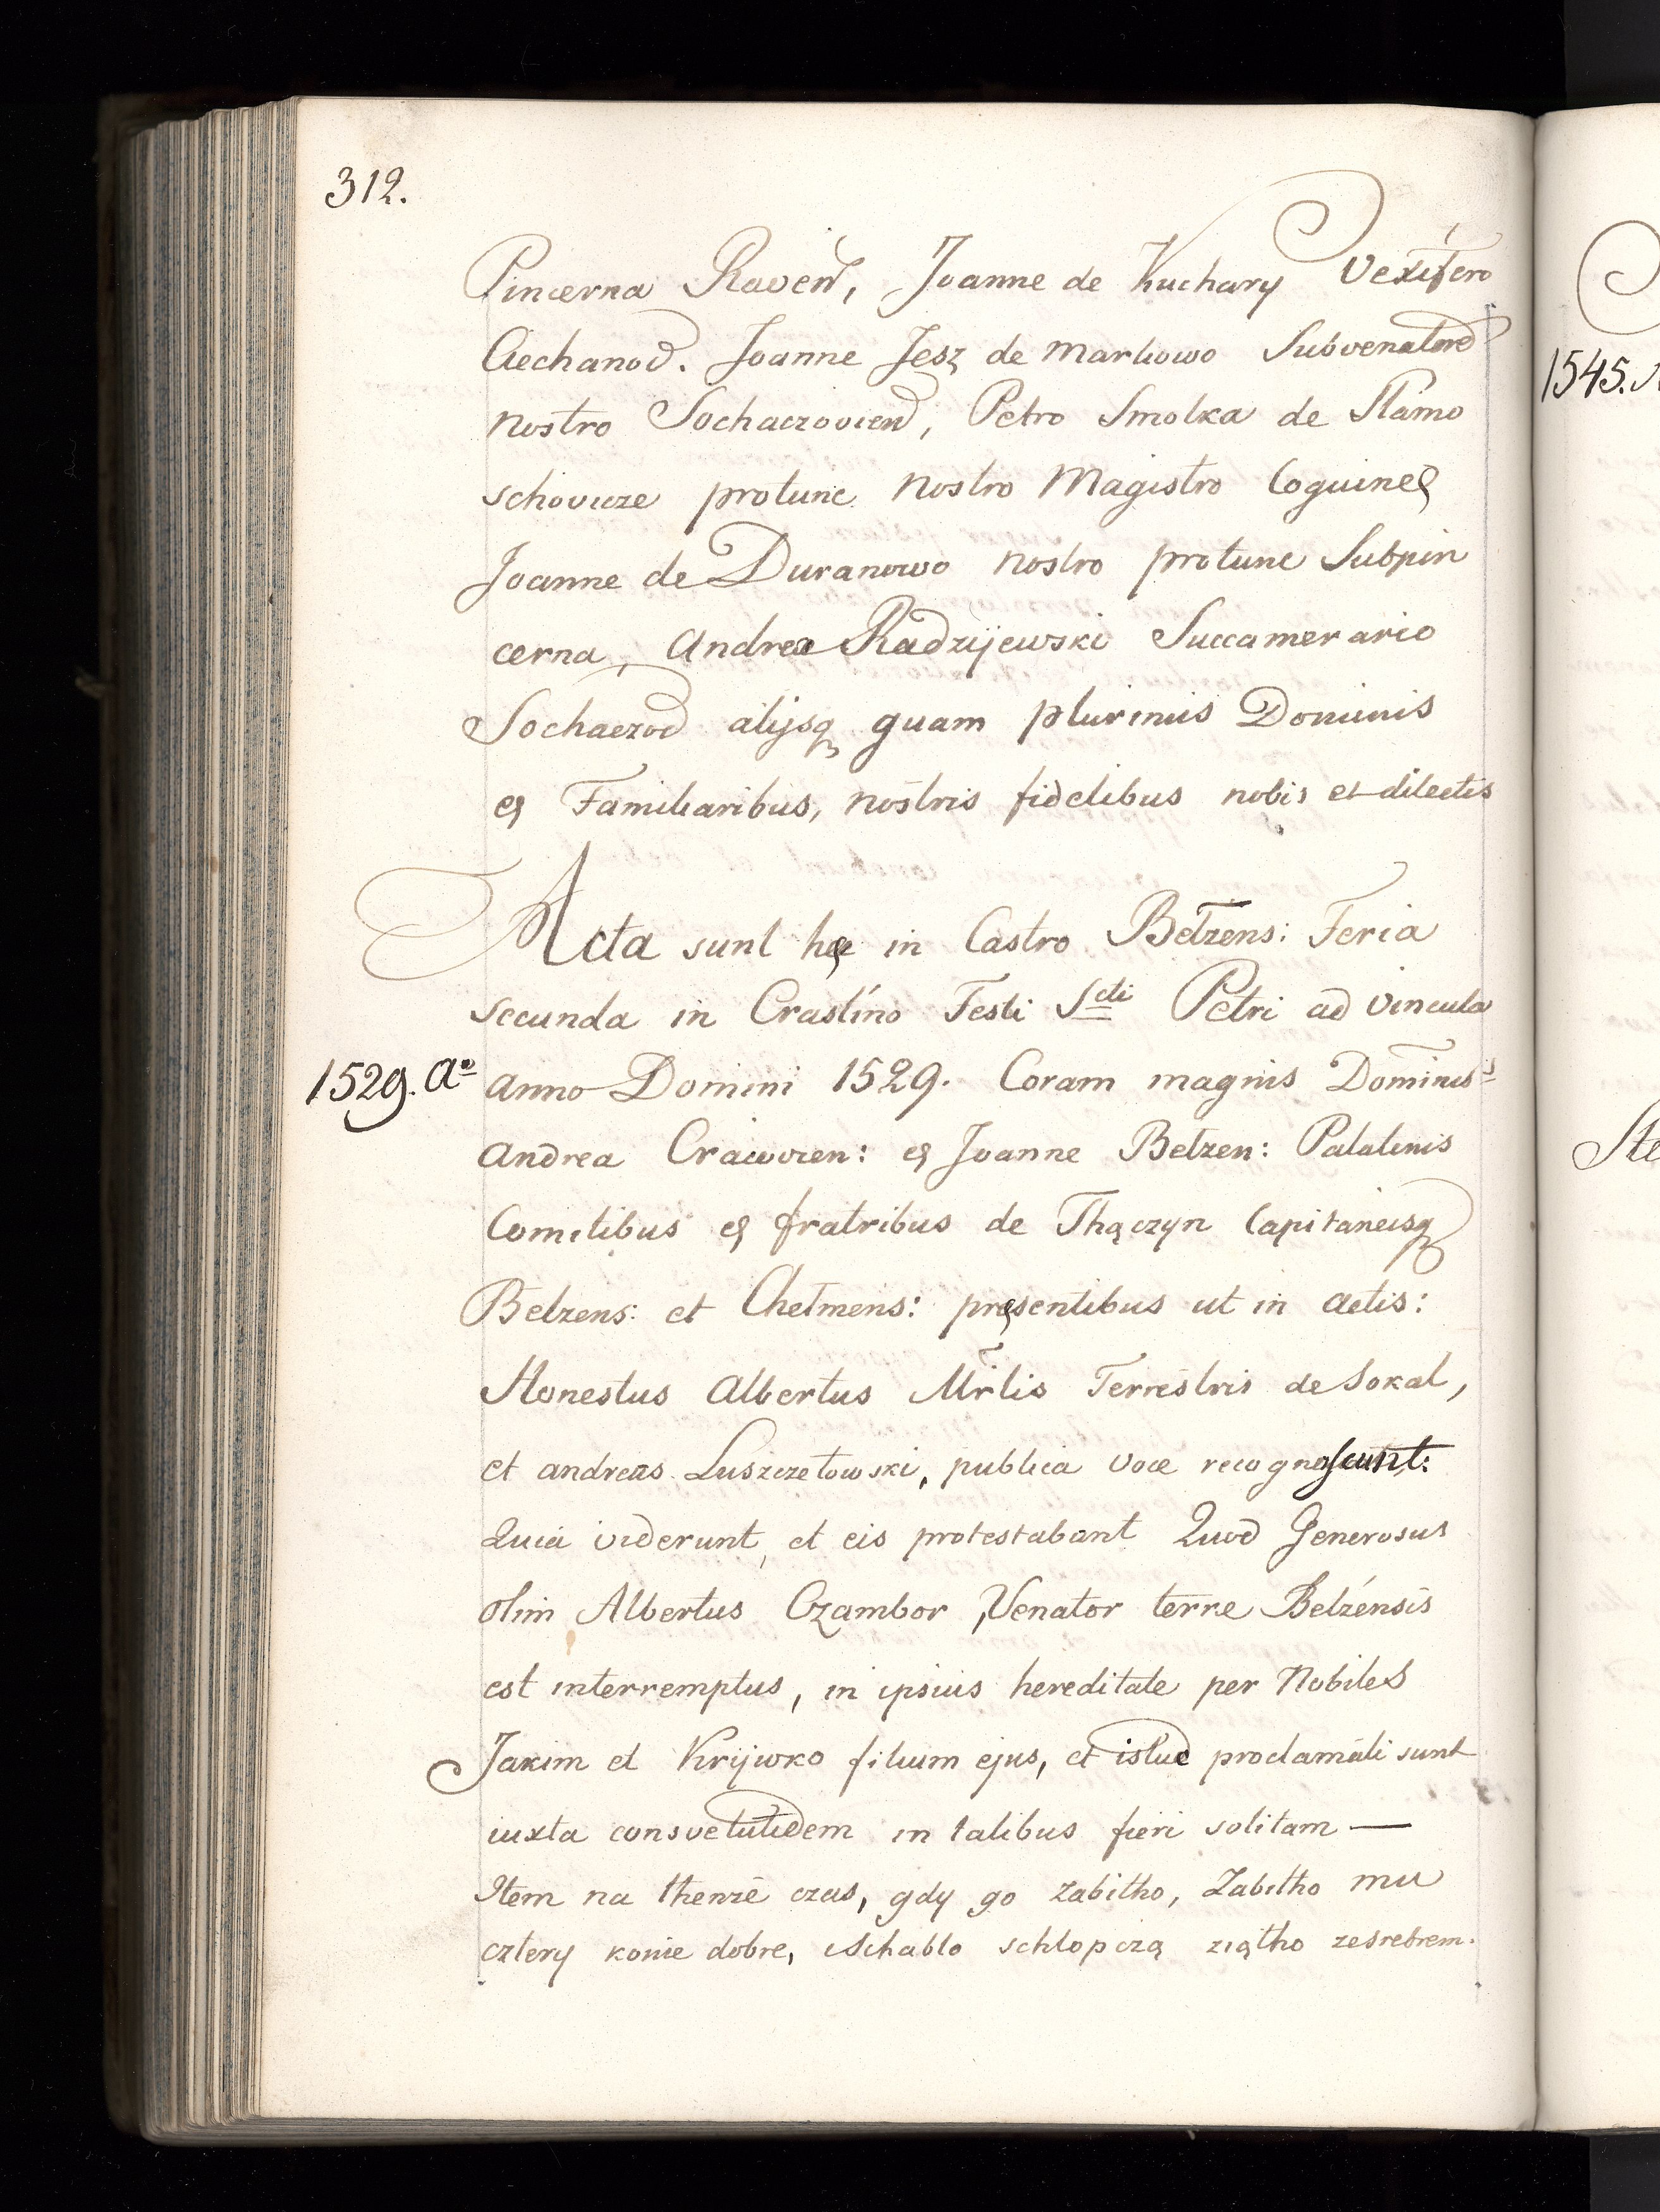 312.
Pincerna Raven, Joanne de Kuchary Vexifero
Ciechanov. Joanne Jesz de Markowo Subvenatore
nostro Sochaczovien, Petro Smolka de Plamo
schovicze protunc nostro Magistro Coguinę
Joanne de Duranowo nostro protunc Subpin
cerna, Andrea Radzijewski Succamerario
Sochaczov alijsq, guam plurimis Dominis
et Familiaribus, nostris fidelibus nobis et dilectis
Acta sunt hęc in Castro Betzens: Feria
secunda in Crastino Festi Scti Petri ad vincula
1529. Ao anno Domini 1529. Coram magnis Dominis
Andrea Cracovien: et Joanne Betzen: Palatinis
Comitibus et fratribus de Thączyn Capitaneisq
Belzens: et Chetmens: pręsentibus ut in actis:
Honestus Albertus Mrlis Terrestris de Sokal,
et andreas Luszczetowski, publica voce recognoscunt:
Quia viderunt, et eis protestabant Quod Generosus
olim Albertus Czambor, Venator terre Belzensis
est interremptus, in ipsius hereditate per Nobiles
Jakim et Krijwko filium ejus, et istud proclamati sunt
iuxta consvetutidem in talibus fieri solitam —
Item na thenże czas, gdy go zabitho, Zabitho mu
cztery konie dobre, ischablo schlopczą ziątho zesrebrem.
1545.
Ste